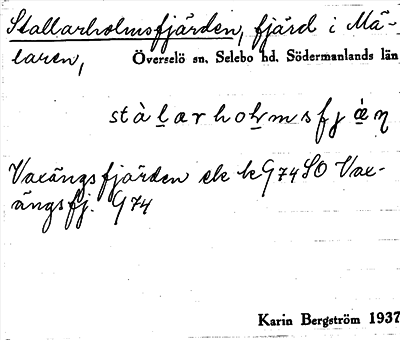 Stallarholmsfjärden, fjärd i Mä-
laren, Överselö sn. Selebo hd. Södermanlands län
stàl̠arhol̠msfjä̀ṇ
Vaxängsfjärden ek k G74SO Vax-
ängsfj. G74
Karin Bergström 1937